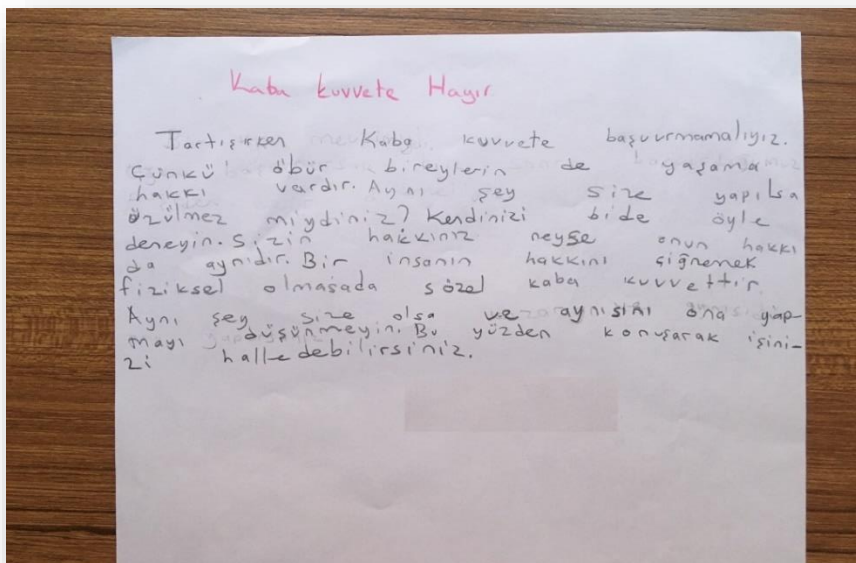 Kaba kuvvete Hayır
Tartışırken Kaba kuvvete başvurmamalıyız.
Çünkü öbür bireylerin de yaşama
hakkı vardır. Aynı şey size yapılsa
üzülmez miydiniz? Kendinizi bide öyle
deneyin. Sizin hakkınız neyse onun hakkı
da aynıdır. Bir insanın hakkını çiğnemek
fiziksel olmasada sözel kaba kuvvettir.
Aynı şey size olsa ve aynısını ona yap-
mayı düşünmeyin. Bu yüzden konuşarak işini-
zi halledebilirsiniz.